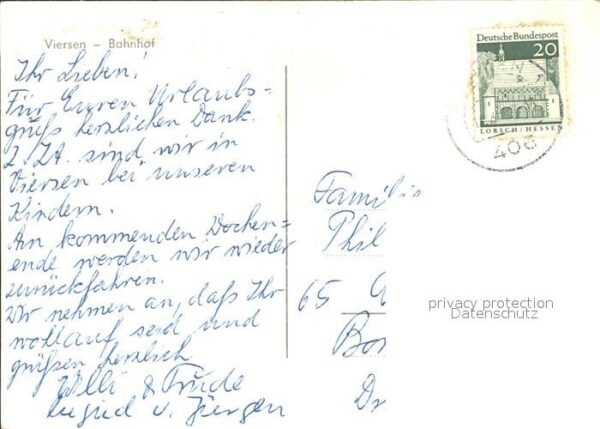 Viersen – Bahnhof
Ihr Lieben!
Für Euren Urlaubs=
gruß herzlichen Dank.
Z. Zt. sind wir in
Viersen bei unseren
Kindern.
Am kommenden Wochen=
ende werden wir wieder
zurückfahren.
Wir nehmen an, daß Ihr
wohlauf seid und
grüßen herzlich
Willi & Trude
u. Jürgen
Deutsche Bundespost
20
LORSCH/HESSEN
406
Famili
Phil
65
privacy protection
Datenschutz
Dr